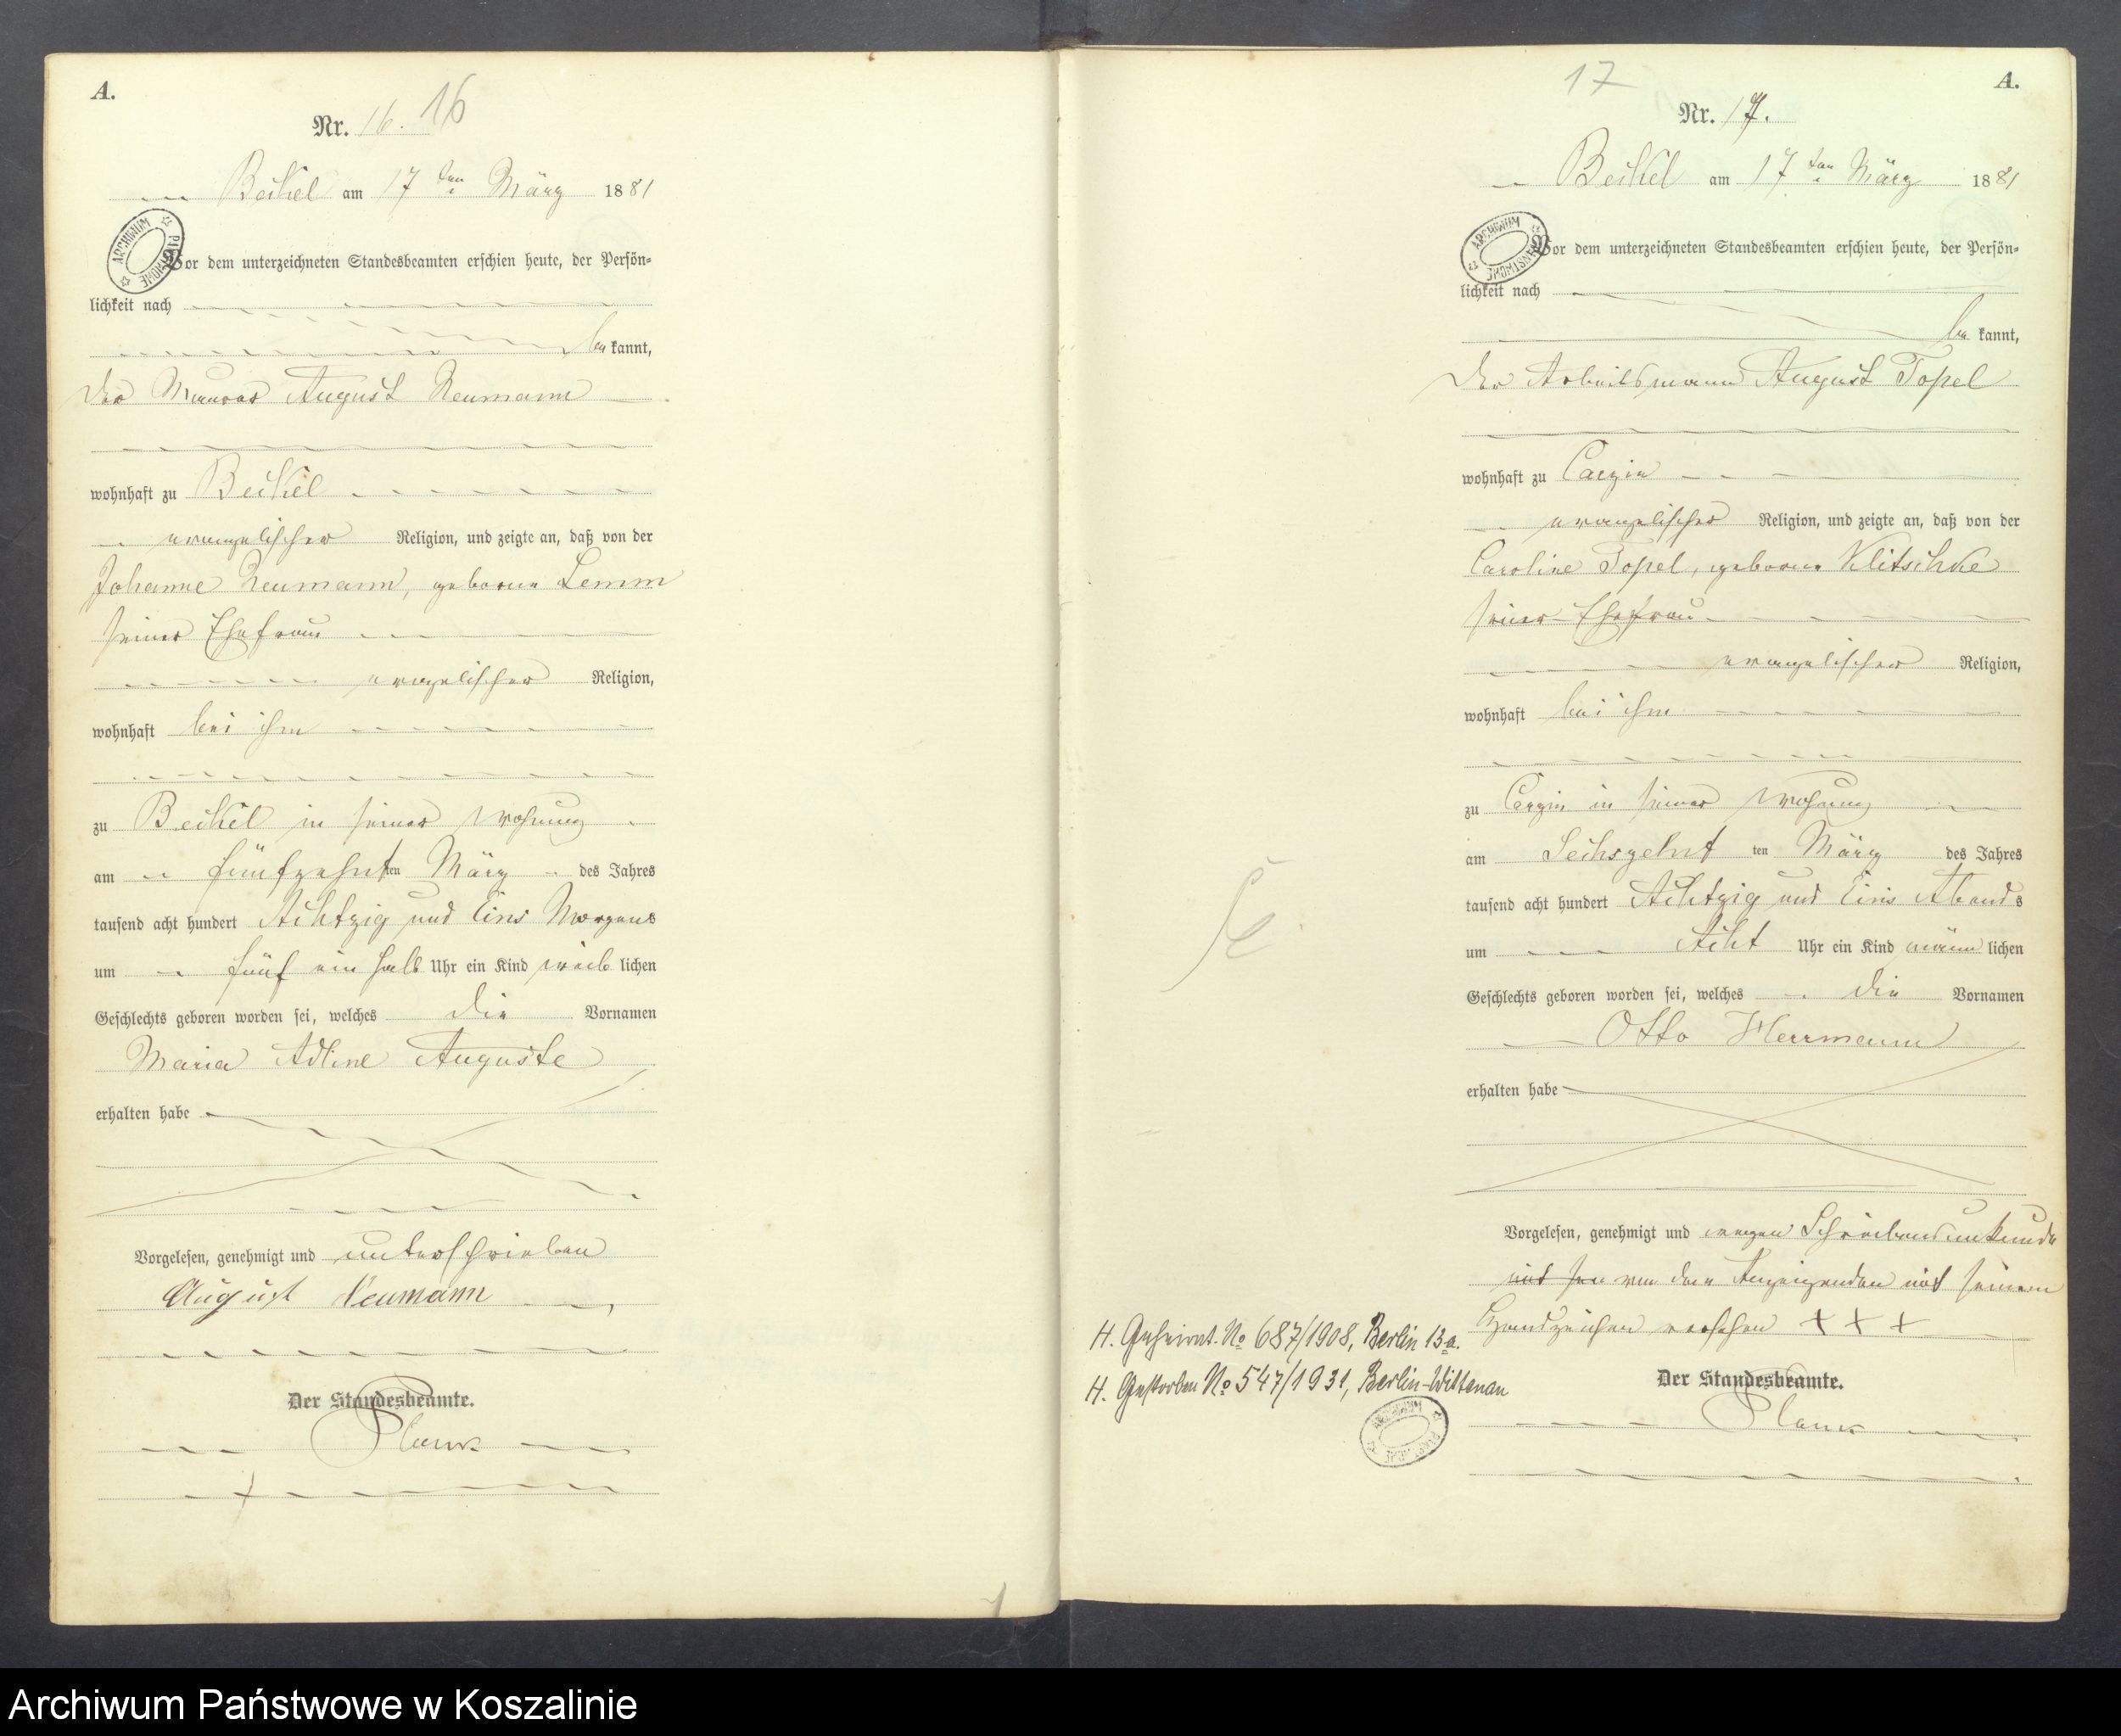 A.
Nr. 16. 16
Beckel am 17 ten März 1881
ARCHIWUM PAŃSTWOWE
Vor dem unterzeichneten Standesbeamten erschien heute, der Persön=
lichkeit nach
be kannt,
der Maurer August Neumann
wohnhaft zu Beckel
evangelischer Religion, und zeigte an, daß von der
Johanne Neumann, geborne Lemm
seiner Ehefrau
evangelischer Religion,
wohnhaft bei ihm
zu Beckel in seiner Wohnung
am fünfzehnt ten März des Jahres
tausend acht hundert Achtzig und Eins Morgens
um fünf ein halb Uhr ein Kind weib lichen
Geschlechts geboren worden sei, welches die Vornamen
Maria Adline Auguste
erhalten habe
Vorgelesen, genehmigt und unterschrieben
August Neumann
Der Standesbeamte.
17
A.
Nr. 17.
Beckel am 17 ten März 1881
ARCHIWUM PAŃSTWOWE
Vor dem unterzeichneten Standesbeamten erschien heute, der Persön=
lichkeit nach
be kannt,
der Arbeitsmann August Topel
wohnhaft zu Carzin
evangelischer Religion, und zeigte an, daß von der
Caroline Topel, geborne Klitschke
seiner Ehefrau
evangelischer Religion,
wohnhaft bei ihm
zu Carzin in seiner Wohnung
am Sechszehnt ten März des Jahres
tausend acht hundert Achtzig und Eins Abends
um Acht Uhr ein Kind männ lichen
Geschlechts geboren worden sei, welches die Vornamen
Otto Herrmann
erhalten habe
Vorgelesen, genehmigt und wegen Schreibensunkunde
mit sei von dem Anzeigenden mit seinem
Handzeichen versehen + + +
H. Geheirat. No 687/1908, Berlin 13a.
H. Gestorben No 547/1931, Berlin-Wittenau
Der Standesbeamte.
Archiwum Państwowe w Koszalinie